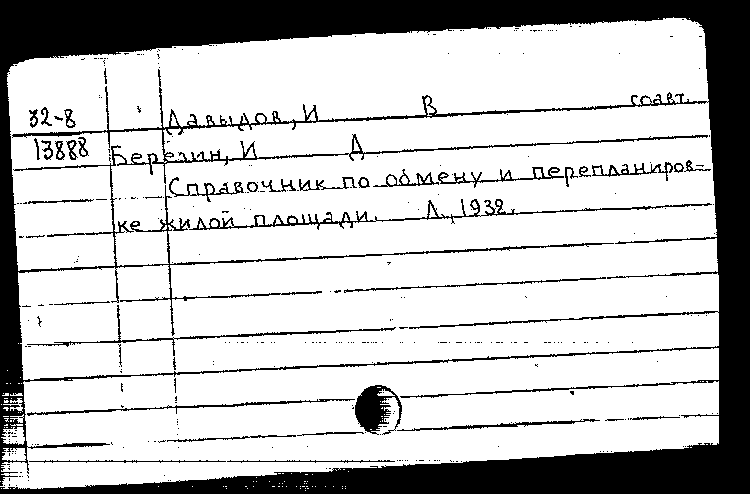 32-8 Давыдов, И В соавт.
13888 Березин, И Д
Справочник по обмену и перепланиров-
ке жилой площади. Л., 1932.